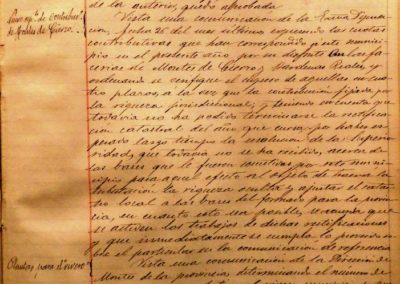 de la anterior, quedó aprobada
Vista una comunicación de la Excma Diputa-
ción, fecha 26 del mes último expresando las cuotas
contributivas que han correspondido a este munici-
pio en el presente año por su disfrute en las fa-
cerias de Montes de Bardenas Reales, y
ordenando se verifique el ingreso de aquellas en cua-
tro plazos, a la vez que la contribución fijada por
la riqueza jurisdiccional, y teniendo en cuenta que
todavía no ha podido terminarse la rectifica-
ción catastral del año que cursa por haber es-
perado largo tiempo la resolución de la Superio-
ridad, que todavía no ha recibido, acerca de
las bases que le fueron sometidas por este muni-
cipio para aquel efecto al objeto de buscar la
tributación la riqueza oculta y ajustar el catas-
tro local a las bases del formado para la provin-
cia, en cuanto esto sea posible, se acuerda que
se activen los trabajos de dichas rectificaciones
y que inmediatamente se cumpla lo preveni-
do en el particular en la comunicación de referencia
Vista una comunicación de la Dirección de
Montes de la provincia determinando el número de
Plantas para el vivero